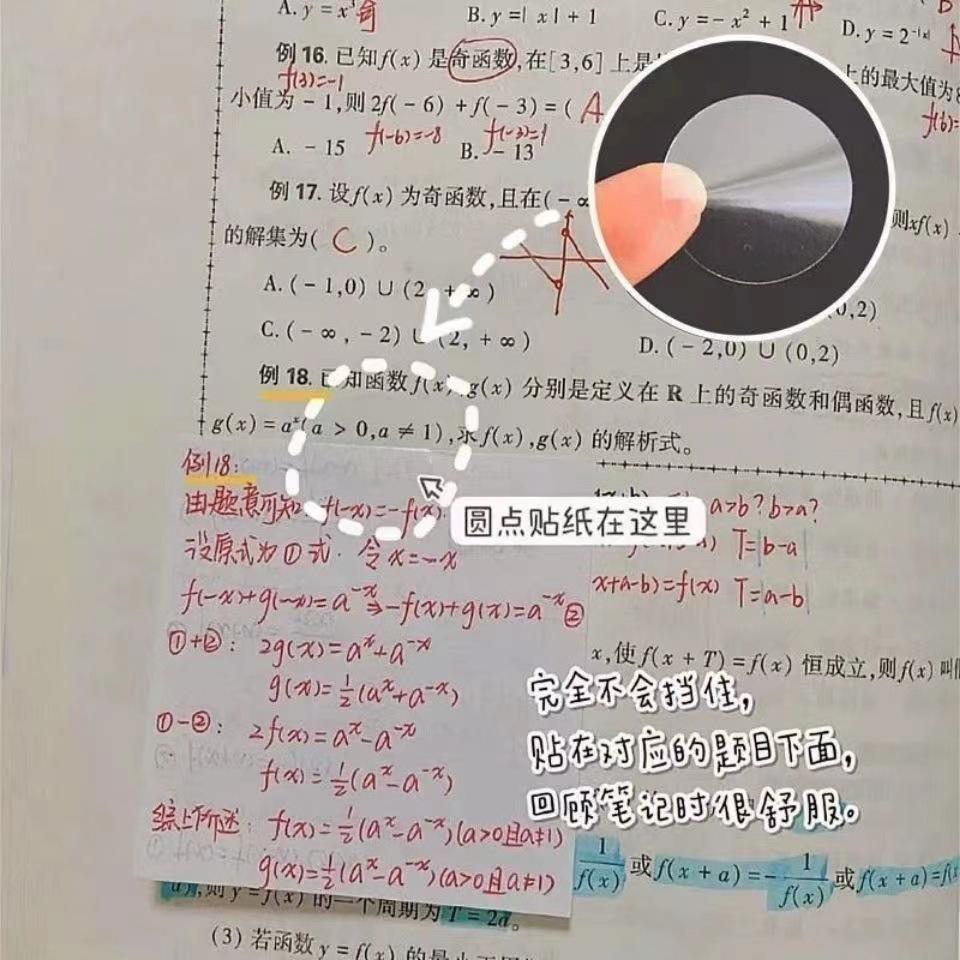 A. y = x³ 奇
B. y =| x | + 1
C. y = − x² + 1
D. y = 2^{-|x|}
例 16. 已知 f(x) 是奇函数,在[3,6] 上是
上的最大值为8
f(3)=-1
小值为 − 1,则 2f( − 6) + f( − 3) = ( A
f(6)=
f(-6)=-8
f(-3)=1
A. − 15
B. − 13
例 17. 设 f(x) 为奇函数,且在( − ∞
则xf(x)
的解集为( C )。
A. ( − 1,0) ∪ (2, + ∞ )
0,2)
C. ( − ∞ , − 2) ∪ (2, + ∞ )
D. ( − 2,0) ∪ (0,2)
例 18. 已知函数 f(x), g(x) 分别是定义在 R 上的奇函数和偶函数,且 f(x)
g(x) = aˣ(a > 0,a ≠ 1),求 f(x),g(x) 的解析式。
例18:
由题意可知 f(-x)=-f(x)
圆点贴纸在这里
a>b?b>a?
设原式为①式. 令x=-x
T=|b-a|
f(-x)+g(-x)=a^{-x}⇒-f(x)+g(x)=a^{-x}②
x+a-b)=f(x) T=|a-b|
①+②: 2g(x)=a^x+a^{-x}
x,使 f(x + T) = f(x) 恒成立,则 f(x) 叫
g(x)=½(a^x+a^{-x})
完全不会挡住,
①-②: 2f(x)=a^x-a^{-x}
贴在对应的题目下面,
f(x)=½(a^x-a^{-x})
回顾笔记时很舒服。
综上所述: f(x)=½(a^x-a^{-x})(a>0且a≠1)
g(x)=½(a^x-a^{-x})(a>0且a≠1)
1/f(x) 或 f(x + a) = − 1/f(x) 或 f(x + a) = f(x
a),则 y = f(x) 的一个周期为 T = 2a。
(3) 若函数 y = f(x) 的最小正周